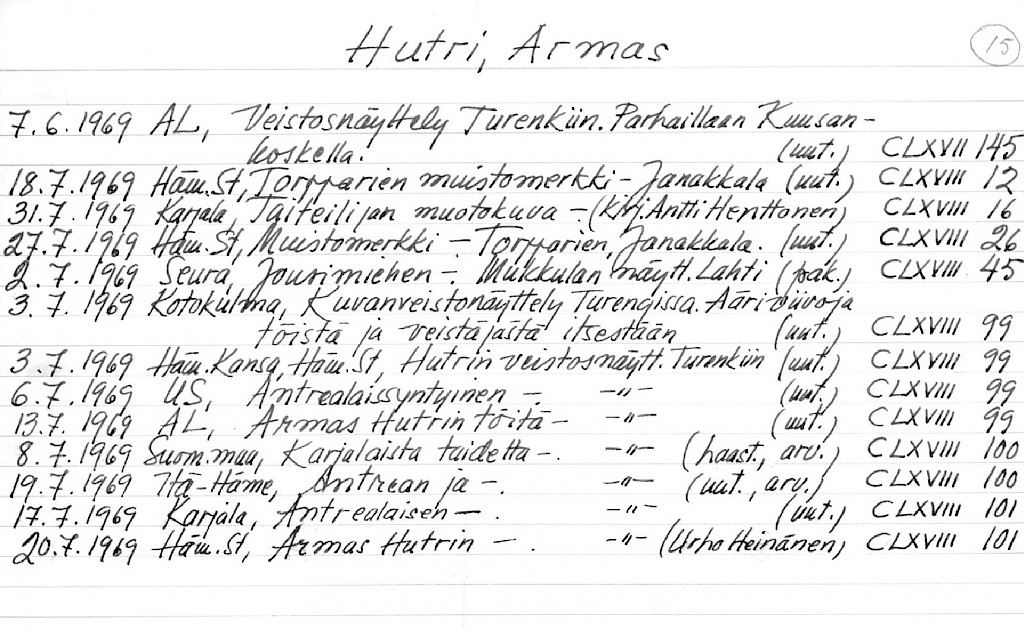 Hutri, Armas
15
7.6.1969 AL, Veistosnäyttely Turenkiin. Parhaillaan Kuusan-
koskella. (uut.) CLXVII 145
18.7.1969 Häm.St, Torpparien muistomerkki - Janakkala (uut.) CLXVIII 12
31.7.1969 Karjala, Taiteilijan muotokuva -. (Kirj. Antti Henttonen) CLXVIII 16
27.7.1969 Häm.St, Muistomerkki - Torpparien, Janakkala. (uut.) CLXVIII 26
2.7.1969 Seura, Jousimiehen -. Mukkulan näytt. Lahti (pak.) CLXVIII 45
3.7.1969 Kotokulma, Kuvanveistonäyttely Turengissa. Ääriviivoja
töistä ja veistäjästä itsestään (uut.) CLXVIII 99
3.7.1969 Häm.Kansa, Häm.St, Hutrin veistosnäytt. Turenkiin (uut.) CLXVIII 99
6.7.1969 US, Antrealaissyntyinen -. -"- (uut.) CLXVIII 99
13.7.1969 AL, Armas Hutrin töitä - -"- (uut.) CLXVIII 99
8.7.1969 Suom.maa, Karjalaista taidetta -. -"- (haast., arv.) CLXVIII 100
19.7.1969 Itä-Häme, Antrean ja -. -"- (uut., arv.) CLXVIII 100
17.7.1969 Karjala, Antrealaisen -. -"- (uut.) CLXVIII 101
20.7.1969 Häm.St, Armas Hutrin -. -"- (Urho Heinänen) CLXVIII 101